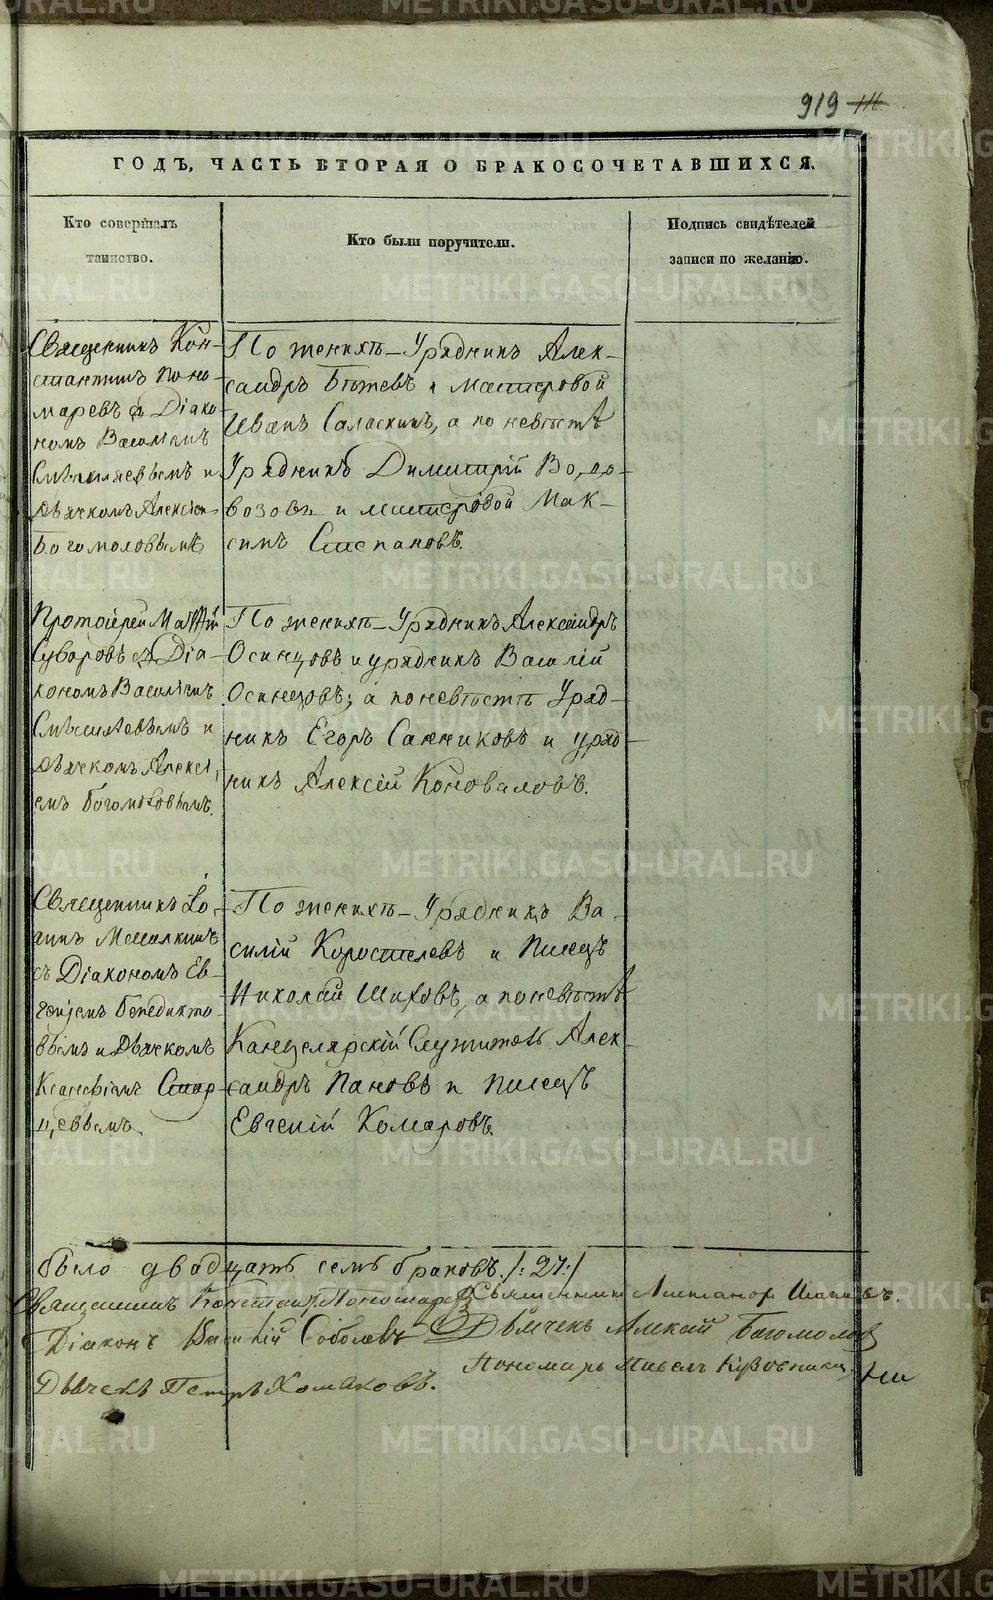 METRIKI.GASO-URAL.RU
919 111.
ГОДЪ, ЧАСТЬ ВТОРАЯ О БРАКОСОЧЕТАВШИХСЯ.
Кто совершалъ
таинство.
Кто были поручители.
Подпись свидѣтелей
записи по желанію.
Священникъ Кон-
стантинъ Поно-
маревъ съ Діако-
номъ Василіемъ
и
дьячкомъ Алексіем
Богомоловымъ
По женихѣ – Урядникъ Алек-
сандръ Бѣтевъ и мастеровой
Иванъ Саласкинъ, а по невѣстѣ
Урядникъ Димитрій Водо-
возовъ и мастеровой Мак-
симъ Степановъ.
Протоіерей Матѳій
Суворовъ съ Діа-
кономъ Василіемъ
и
дьячкомъ Алексі-
емъ Богомоловымъ.
По женихѣ – Урядникъ Александръ
Осинцовъ и урядникъ Василій
Осинцовъ; а по невѣстѣ Уряд-
никъ Егоръ Санниковъ и уряд-
никъ Алексій Коноваловъ.
Священникъ Іо-
аннъ
съ Діакономъ Ев-
геніемъ Бенедикто-
вымъ и Дьячкомъ
Ксенофонтомъ Стар-
цевымъ.
По женихѣ – Урядникъ Ва-
силій Коростелевъ и Писецъ
Николай Шиховъ, а по невѣстѣ
Канцелярскій Служитель Алек-
сандръ Пановъ и писецъ
Евгеній Комаровъ.
Было двадцать семь браковъ. /:27:/
Священникъ Констант. Пономаревъ
Священникъ
Діаконъ Василій Соболевъ
Дьячекъ Алексій Богомолов
Дьячекъ Петръ Хомяковъ.
Пономарь Павелъ